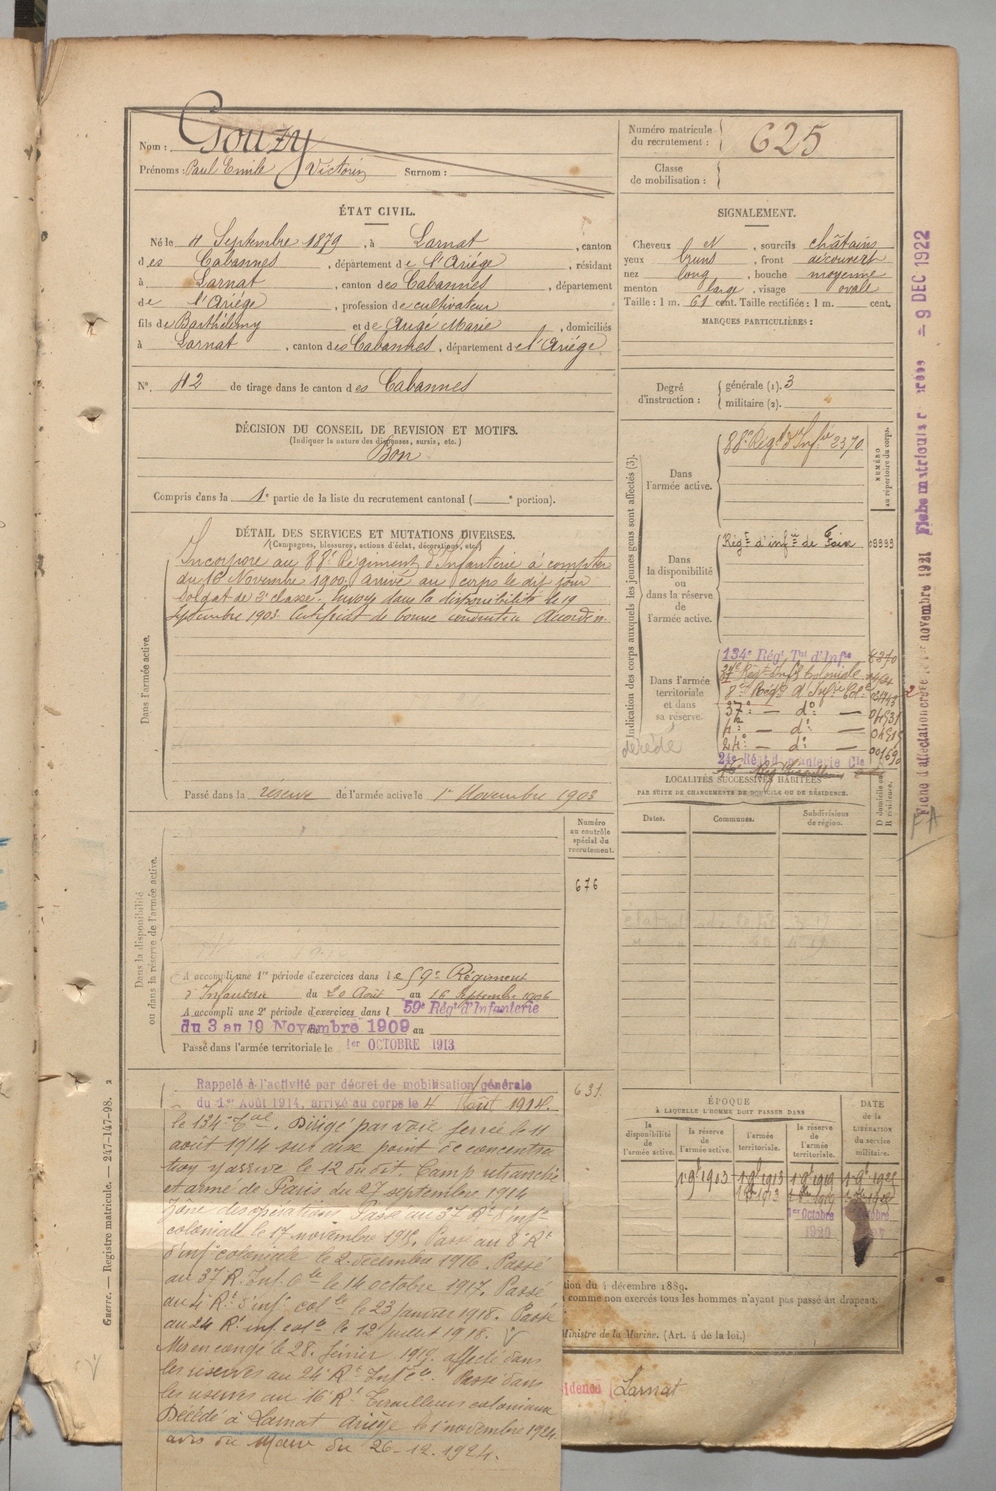 Nom : Gouzy
Prénoms : Paul Emile Victorin Surnom :
Numéro matricule du recrutement : 625
Classe de mobilisation :
ÉTAT CIVIL.
Né le 11 Septembre 1879, à Larnat, canton
des Cabannes, département de l'Ariége, résidant
à Larnat, canton des Cabannes, département
de l'Ariége, profession de cultivateur
fils de Barthélemy et de Augé Marie, domiciliés
à Larnat, canton des Cabannes, département de l'Ariége.
N°. 112 de tirage dans le canton des Cabannes
SIGNALEMENT.
Cheveux N, sourcils châtains
yeux bruns, front découvert
nez long, bouche moyenne
menton large, visage ovale
Taille : 1 m. 61 cent. Taille rectifiée : 1 m. cent.
MARQUES PARTICULIÈRES :
Degré d'instruction : générale (1). 3
militaire (2).
DÉCISION DU CONSEIL DE REVISION ET MOTIFS.
(Indiquer la nature des dispenses, sursis, etc.)
Bon
Compris dans la 1e partie de la liste du recrutement cantonal ( e portion).
DÉTAIL DES SERVICES ET MUTATIONS DIVERSES.
(Campagnes, blessures, actions d'éclat, décorations, etc.)
Dans l'armée active.
Incorporé au 88e Régiment d'Infanterie à compter
du 16 Novembre 1900. arrivé au corps le dit jour
Soldat de 2e classe. Envoyé dans la disponibilité le 19
Septembre 1903. Certificat de bonne conduite Accordé.
Passé dans la réserve de l'armée active le 1er Novembre 1903
Indication des corps auxquels les jeunes gens sont affectés (3).
NUMÉRO au répertoire du corps.
Dans l'armée active.
88e Régt d'Infie 2370
Dans la disponibilité ou dans la réserve de l'armée active.
Régt d'infrie de Foix 05995
Dans l'armée territoriale et dans sa réserve.
134e Régt Tal d'Infie
8e Régt d'Infie Cole
37e — do —
4e — do —
24e — do —
décédé
LOCALITÉS SUCCESSIVES HABITÉES
PAR SUITE DE CHANGEMENTS DE DOMICILE OU DE RÉSIDENCE.
Dates. Communes. Subdivisions de région. D domicile ou R résidence.
Dans la disponibilité ou dans la réserve de l'armée active.
Numéro au contrôle spécial du recrutement.
676
A accompli une 1re période d'exercices dans le 59e Régiment
d'Infanterie du 20 Août au 16 Septembre 1906
A accompli une 2e période d'exercices dans l 59e Régt d'Infanterie
du 3 au 19 Novembre 1909 au
Passé dans l'armée territoriale le 1er OCTOBRE 1913
Rappelé à l'activité par décret de mobilisation générale
du 1er Août 1914, arrivé au corps le 4 Août 1914.
631
le 134e tal. Dirigé par voie ferrée le 11
août 1914 sur dix point de concentra
tion y arrive le 12 du dit Camp retranché
et armé de Paris du 27 septembre 1914
Zône des opérations. Passé au 37 Rt d'infie
coloniale le 17 novembre 1915 Passé au 8e Rt
d'infie coloniale le 2 décembre 1916. Passé
au 37 R. Inf. Cle le 14 octobre 1917. Passé
au 4e Rt d'inf. colle le 23 janvier 1918. Passé
au 24 Rt inf. colle le 12 juillet 1918.
Mis en congé le 28 février 1919. affecté dans
les réserves au 24e Rt Infie Cle. Passé dans
les réserves au 16e Rt Tirailleurs coloniaux
Décédé à Larnat Ariège le 1 novembre 1924.
avis du Maire du 26-12-1924.
ÉPOQUE
À LAQUELLE L'HOMME DOIT PASSER DANS
la disponibilité de l'armée active. la réserve de l'armée active. l'armée territoriale. la réserve de l'armée territoriale. DATE de la LIBÉRATION du service militaire.
1er Octobre
ion du 4 décembre 1889.
comme non exercés tous les hommes n'ayant pas passé au drapeau.
Ministre de la Marine. (Art. 4 de la loi.)
sidence Larnat
Guerre. — Registre matricule. — 247-147-98. 2
novembre 1921 Fiche matricule - 9 DEC 1922
FA